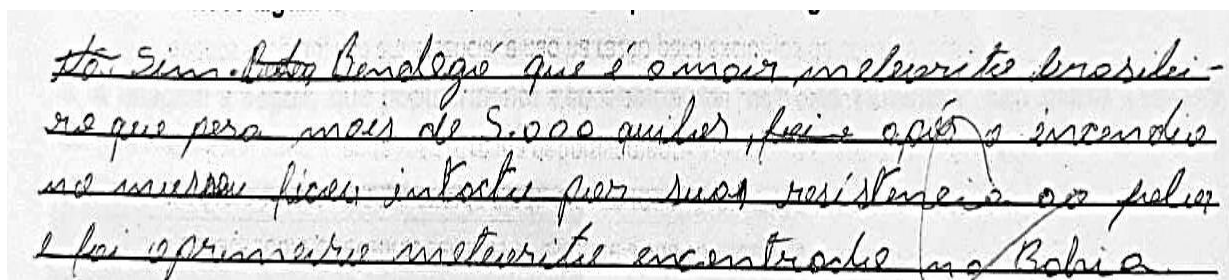 Sim. Bendegó que é o moir meteorito brasilei-
ro que pesa mais de 5.000 quilos, foi e após o incendio
no museu ficou intacto por suas resistencia ao
e foi o primeiro meteorito encontrado na Bahia